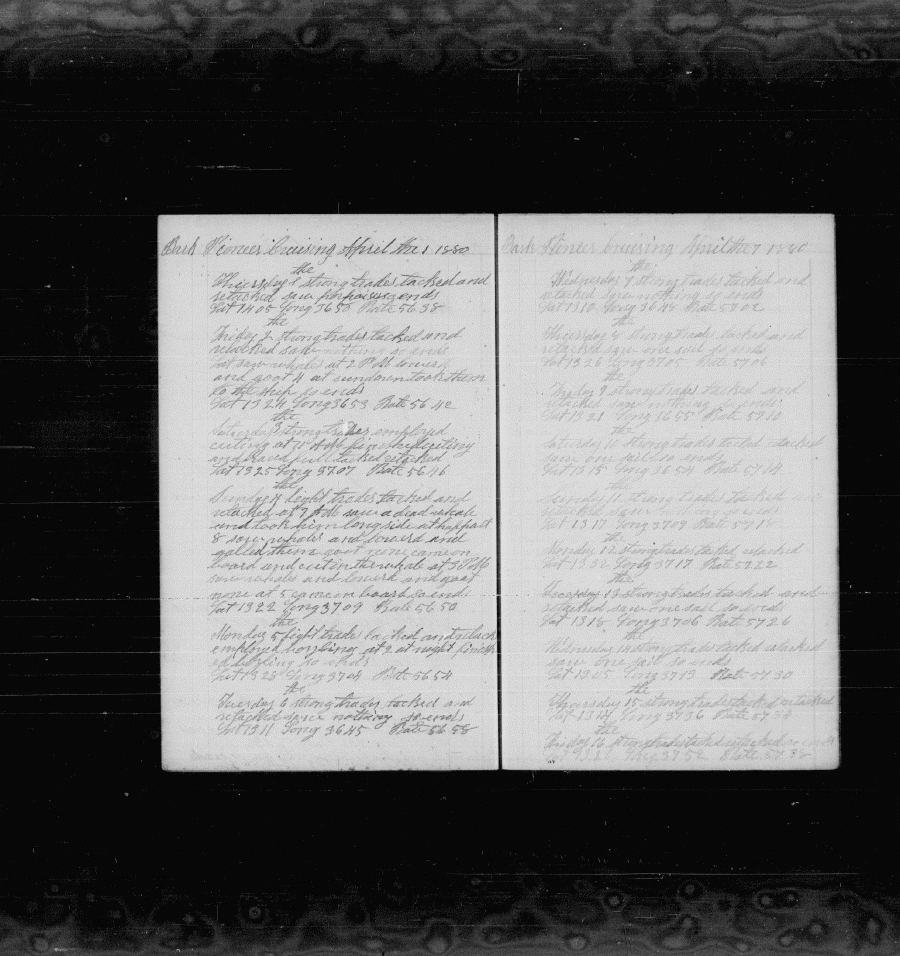 Bark Pioneer Cruising April the 1 1880
the
Thursday 1 strong trades tacked and
retacked saw porpoises so ends
Lat 1405 Long 3650 Rate 5638
the
Friday 2 strong trades tacked and
retacked saw nothing so ends
but saw whales at 2 P M lowerd
and goot 4 at sundown took them
to the ship so ends
Lat 1324 Long 3653 Rate 5642
the
Saturday 3 strong trades employed
cuting at 10 A M finished cuting
and braced full tacked retacked
Lat 1325 Long 3707 Rate 5646
the
Sunday 4 light trades tacked and
retacked at 7 A M saw a dead whale
and took him long side at happast
8 saw whales and lowerd and
galled them goot none came on
board and cut in the whale at 3 P M
saw whales and lowerd and goot
none at 5 came on board so ends
Lat 1322 Long 3709 Rate 5650
the
Monday 5 light trades tacked and retack
employed boyling at 2 at night finish
ed boyling so ends
Lat 1328 Long 3704 Rate 5654
the
Tuesday 6 strong trades tacked and
retacked saw nothing so ends
Lat 1311 Long 3645 Rate 5658
Bark Pioneer Cruising April the 7 1880
the
Wednesday 7 strong trades tacked and
retacked saw nothing so ends
Lat 1310 Long 3645 Rate 5702
the
Thursday 8 strong trades tacked and
retacked saw one sail so ends
Lat 1326 Long 3701 Rate 5706
the
Friday 9 strong trades tacked and
retacked saw nothing so ends
Lat 1321 Long 3655 Rate 5710
the
Saturday 10 strong trades tacked retacked
saw one sail so ends
Lat 1315 Long 3654 Rate 5714
the
Sunday 11 strong trades tacked and
retacked saw so ends
Lat 1317 Long 3709 Rate 5718
the
Monday 12 strong trades tacked retacked
Lat 1332 Long 3717 Rate 5722
the
Tuesday 13 strong trades tacked and
retacked saw one sail so ends
Lat 1318 Long 3706 Rate 5726
the
Wednesday 14 strong trades tacked retacked
saw one sail so ends
Lat 1305 Long 3713 Rate 5730
the
Thursday 15 strong trades tacked retacked
Lat 1314 Long 3736 Rate 5734
the
Friday 16 strong trades tacked retacked so ends
Long 3752 Rate 5738